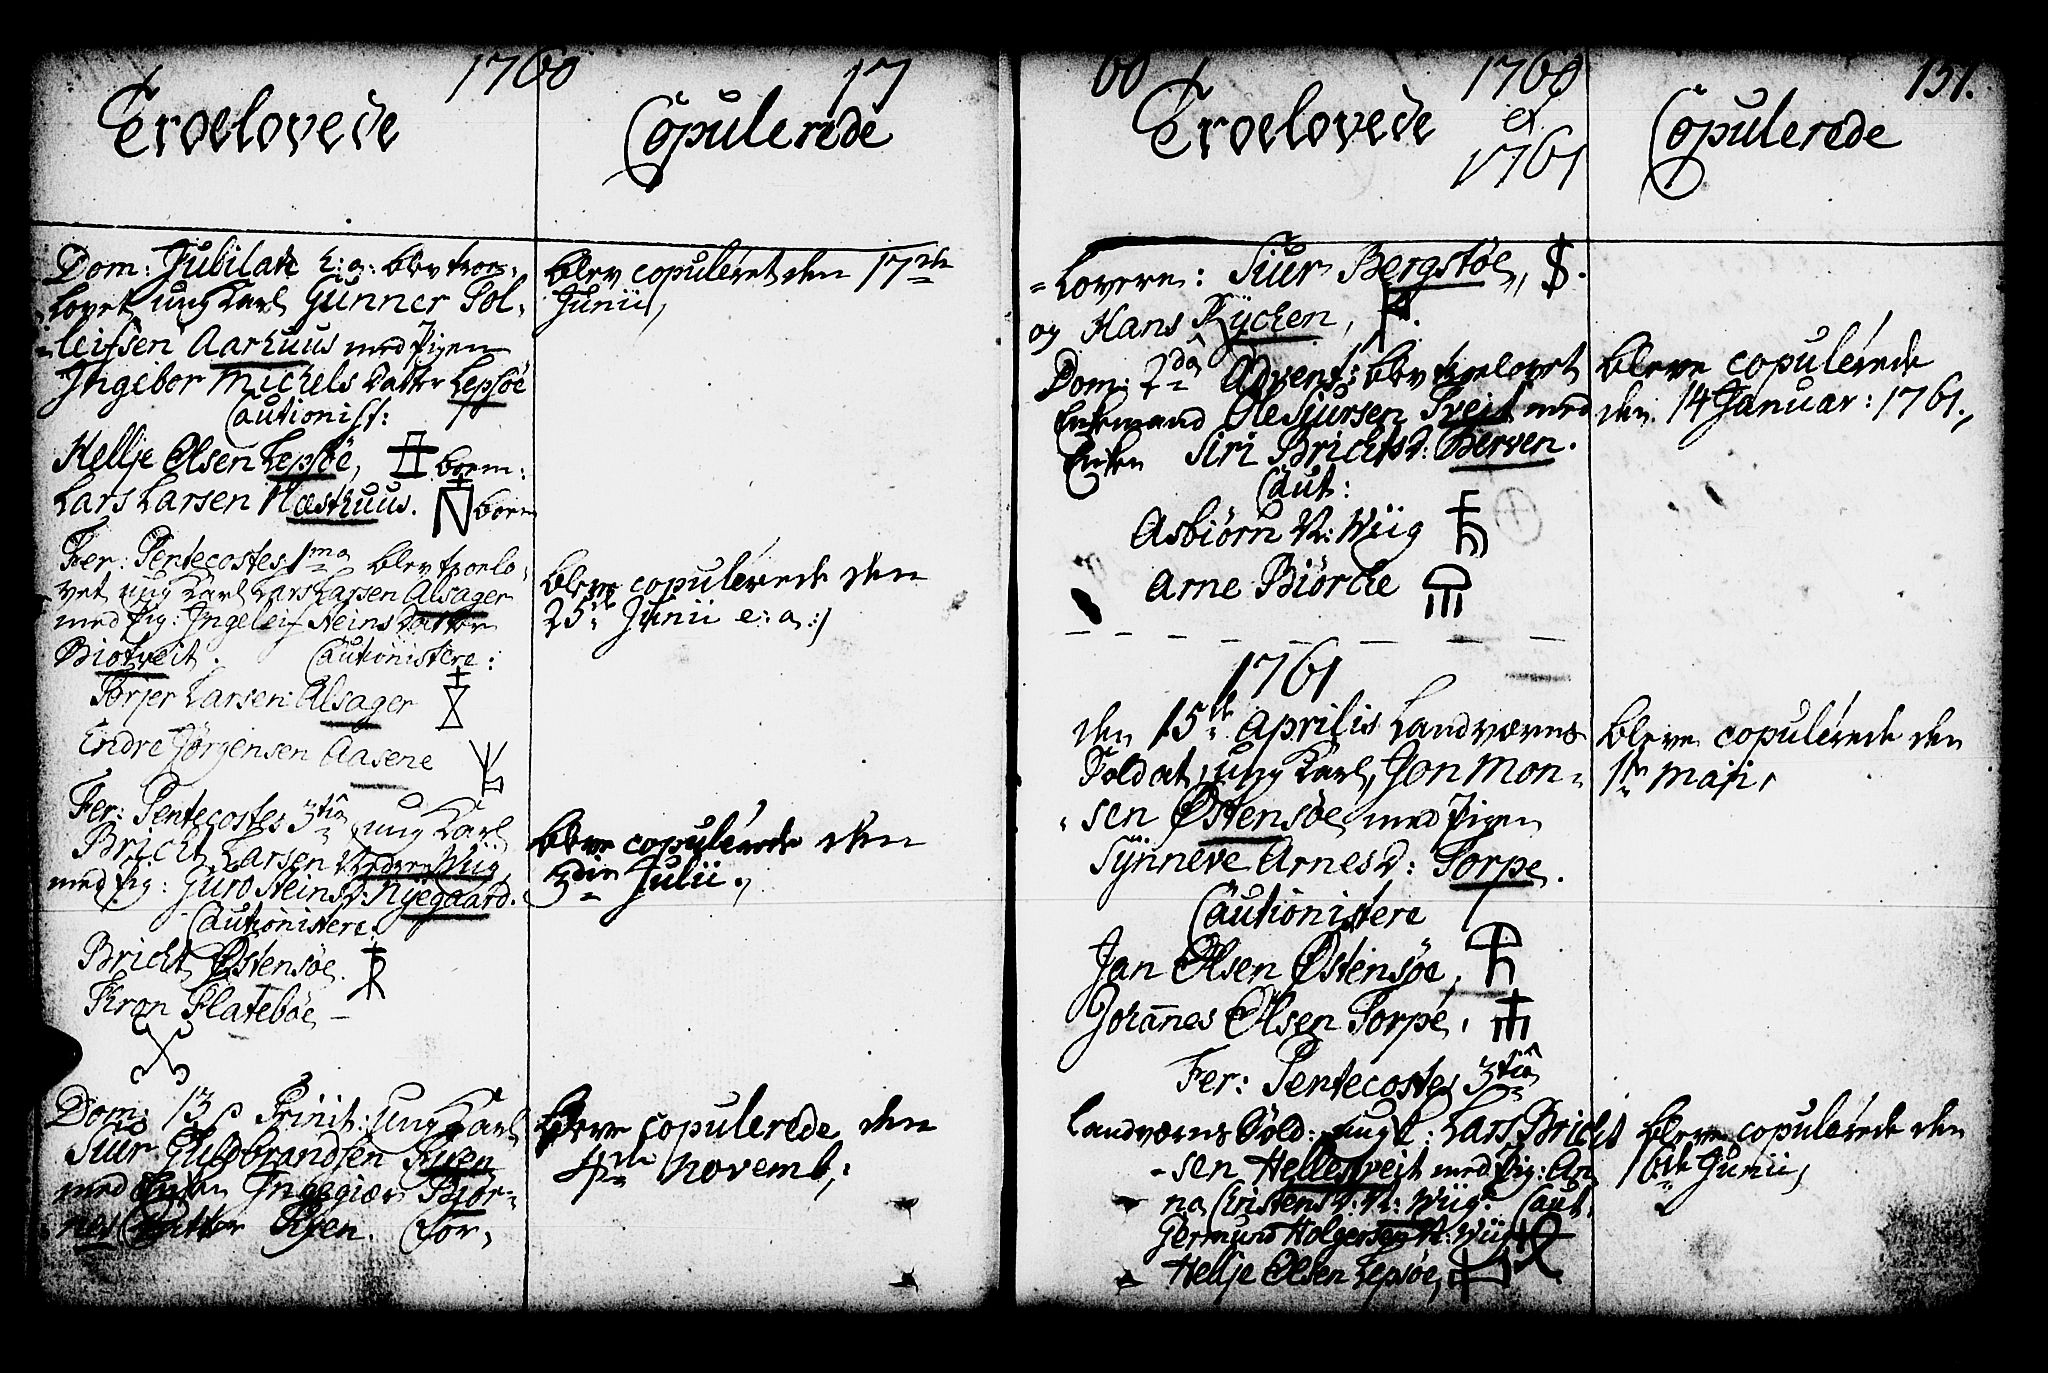 1760
Troelovede
17
Copulerede
Dom: Jubilate h: a: blev troe-
lovet ung Karl Gunner Tol-
leifsen Aarhuus med Pigen
Ingebor Michels datter Lepsöe
Cautionist:
Hellje Olsen Lepsöe, boem:
Lars Larsen Næsthuus. boem
blev copuléret den 17de
Junii,
Fer: Pentecostes 1ma blev troelo-
vet ung Karl Lars Larsen Alsager
med Pig: Ingeleif Steins datter
Biotveit. Cautionistere:
Torjer Larsen Alsager
Endre Jörgensen Aasene
bleve copulérede den
25de Junii e: a:
Fer: Pentecostes 3tia ung Karl
Bricht Larsen Nedre Wiig
med Pig: Guro Steinsd: Nyegaard.
Cautionistere.
Bricht Østensöe.
Tron Flateböe
bleve copulérede den
3die Julii.
Dom: 13 p Trinit: ung Karl
Siur Guldbrandsen Tven
med Enken Ingegier Biör-
nes datter Tven. For-
bleve copulerede den
4de novemb:
60
Troelovede
1760
et
1761
Copulerede
131.
-lovere: Siur Bergstöe,
og Hans Rÿcken,
Dom: 2da Advent: blev troelovet
Enkemand Ole Siursen Tveit med
Enken Siri Brichtsd: Berven.
Caut:
Asbiörn N: Wiig
Arne Biörche
bleve copulérede
den 14 Januar: 1761.
1761
den 15de Aprilis Landværns
Soldat, ung Karl, Jon Mon-
sen Østensöe med Pigen
Sÿnneve Arnesd: Torpe.
Cautionistere
Jan Olsen Østensöe,
Johannes Olsen Torpe,
bleve copulérede den
1te Maji,
Fer: Pentecostes 3tia
Landværns Sold: ung K: Lars Bricht
-sen Hellesveit med Pig: An
na Christensd: N: Wiig. Caut.
Germund Holgersen N: Wiig
Hellje Olsen Lepsöe,
bleve copulérede den
16de Junii,